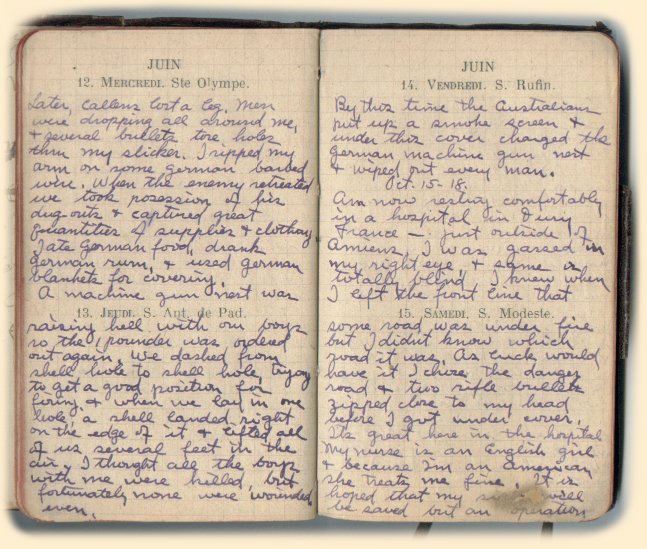 JUIN
12. MERCREDI. Ste Olympe.
Later, Callens lost a leg. Men
were dropping all around me,
& several bullets tore holes
thru my slicker. I ripped my
arm on some german barbed
wire. When the enemy retreated
we took posession of his
dug-outs & captured great
quantities of supplies & clothing
I ate German food, drank
German rum, & used german
blankets for covering.
A machine gun nest was
13. JEUDI. S. Ant. de Pad.
raising hell with our boys
so the 1 pounder was ordered
out again. We dashed from
shell hole to shell hole trying
to get a good position for
firing & when we lay in one
hole, a shell landed right
on the edge of it & lifted all
of us several feet in the
air. I thought all the boys
with me were killed, but
fortunately none were wounded
even.
JUIN
14. VENDREDI. S. Rufin.
By this time the Australians
put up a smoke screen &
under this cover charged the
german machine gun nest
& wiped out every man.
Oct. 15-18.
Am now resting comfortably
in a hospital in
France – just outside of
Amiens. I was gassed in
my right eye, & same is
totally blind. I knew when
I left the front line that
15. SAMEDI. S. Modeste.
some road was under fire
but I didn't know which
road it was. As luck would
have it I chose the danger
road & two rifle bullets
zipped close to my head
before I got under cover.
Its great here in the hospital
My nurse is an English girl
& because I'm an american
she treats me fine. It is
hoped that my will
be saved but an operation